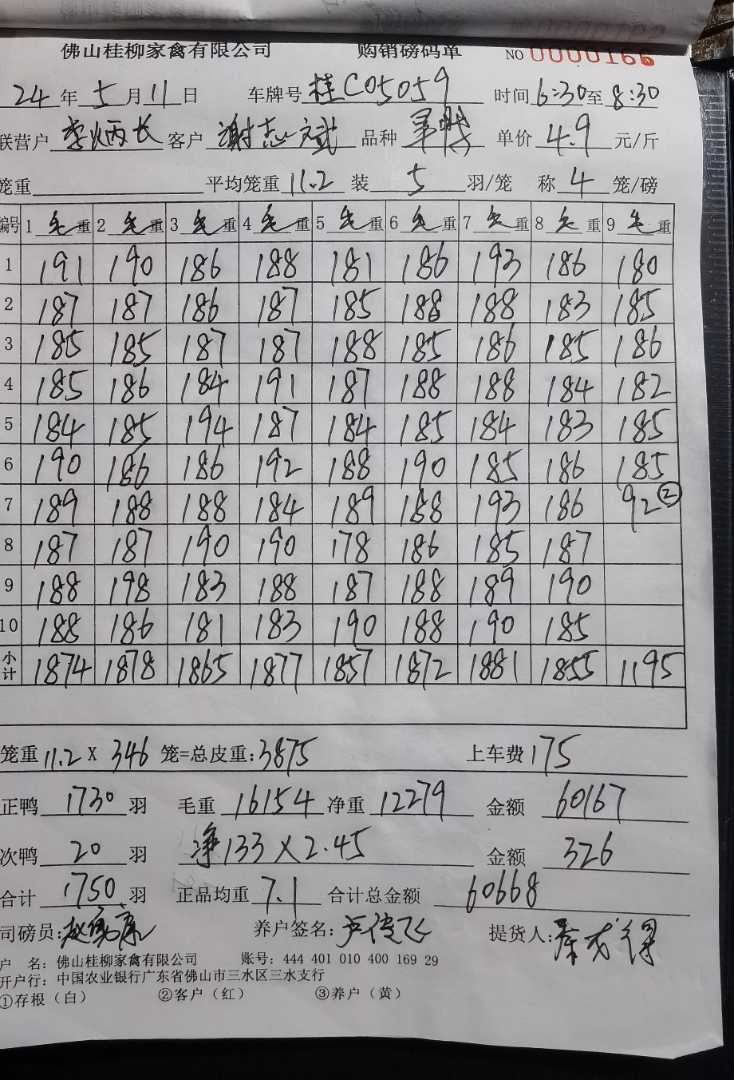 佛山桂柳家禽有限公司 购销磅码单 NO 0000166
24 年 5 月 11 日 车牌号 桂C05059 时间 6:30 至 8:30
联营户 李炳长 客户 谢志斌 品种 单价 4.9 元/斤
笼重 平均笼重 11.2 装 5 羽/笼 称 4 笼/磅
编号 1 毛重 2 毛重 3 毛重 4 毛重 5 毛重 6 毛重 7 毛重 8 毛重 9 毛重
1 191 190 186 188 181 186 193 186 180
2 187 187 186 187 185 188 188 183 185
3 185 185 187 187 188 185 186 185 186
4 185 186 184 191 187 188 188 184 182
5 184 185 194 187 184 185 184 183 185
6 190 186 186 192 188 190 185 186 185
7 189 188 188 184 189 188 193 186 92 ②
8 187 187 190 190 178 186 185 187
9 188 198 183 188 187 188 189 190
10 188 186 181 183 190 188 190 185
小计 1874 1878 1865 1877 1857 1872 1881 1855 1195
笼重 11.2 X 346 笼=总皮重: 3875 上车费 175
正鸭 1730 羽 毛重 16154 净重 12279 金额 60167
次鸭 20 羽 净133×2.45 金额 326
合计 1750 羽 正品均重 7.1 合计总金额 60668
司磅员: 养户签名: 卢传飞 提货人:
户 名: 佛山桂柳家禽有限公司 账号: 444 401 010 400 169 29
开户行: 中国农业银行广东省佛山市三水区三水支行
①存根（白） ②客户（红） ③养户（黄）